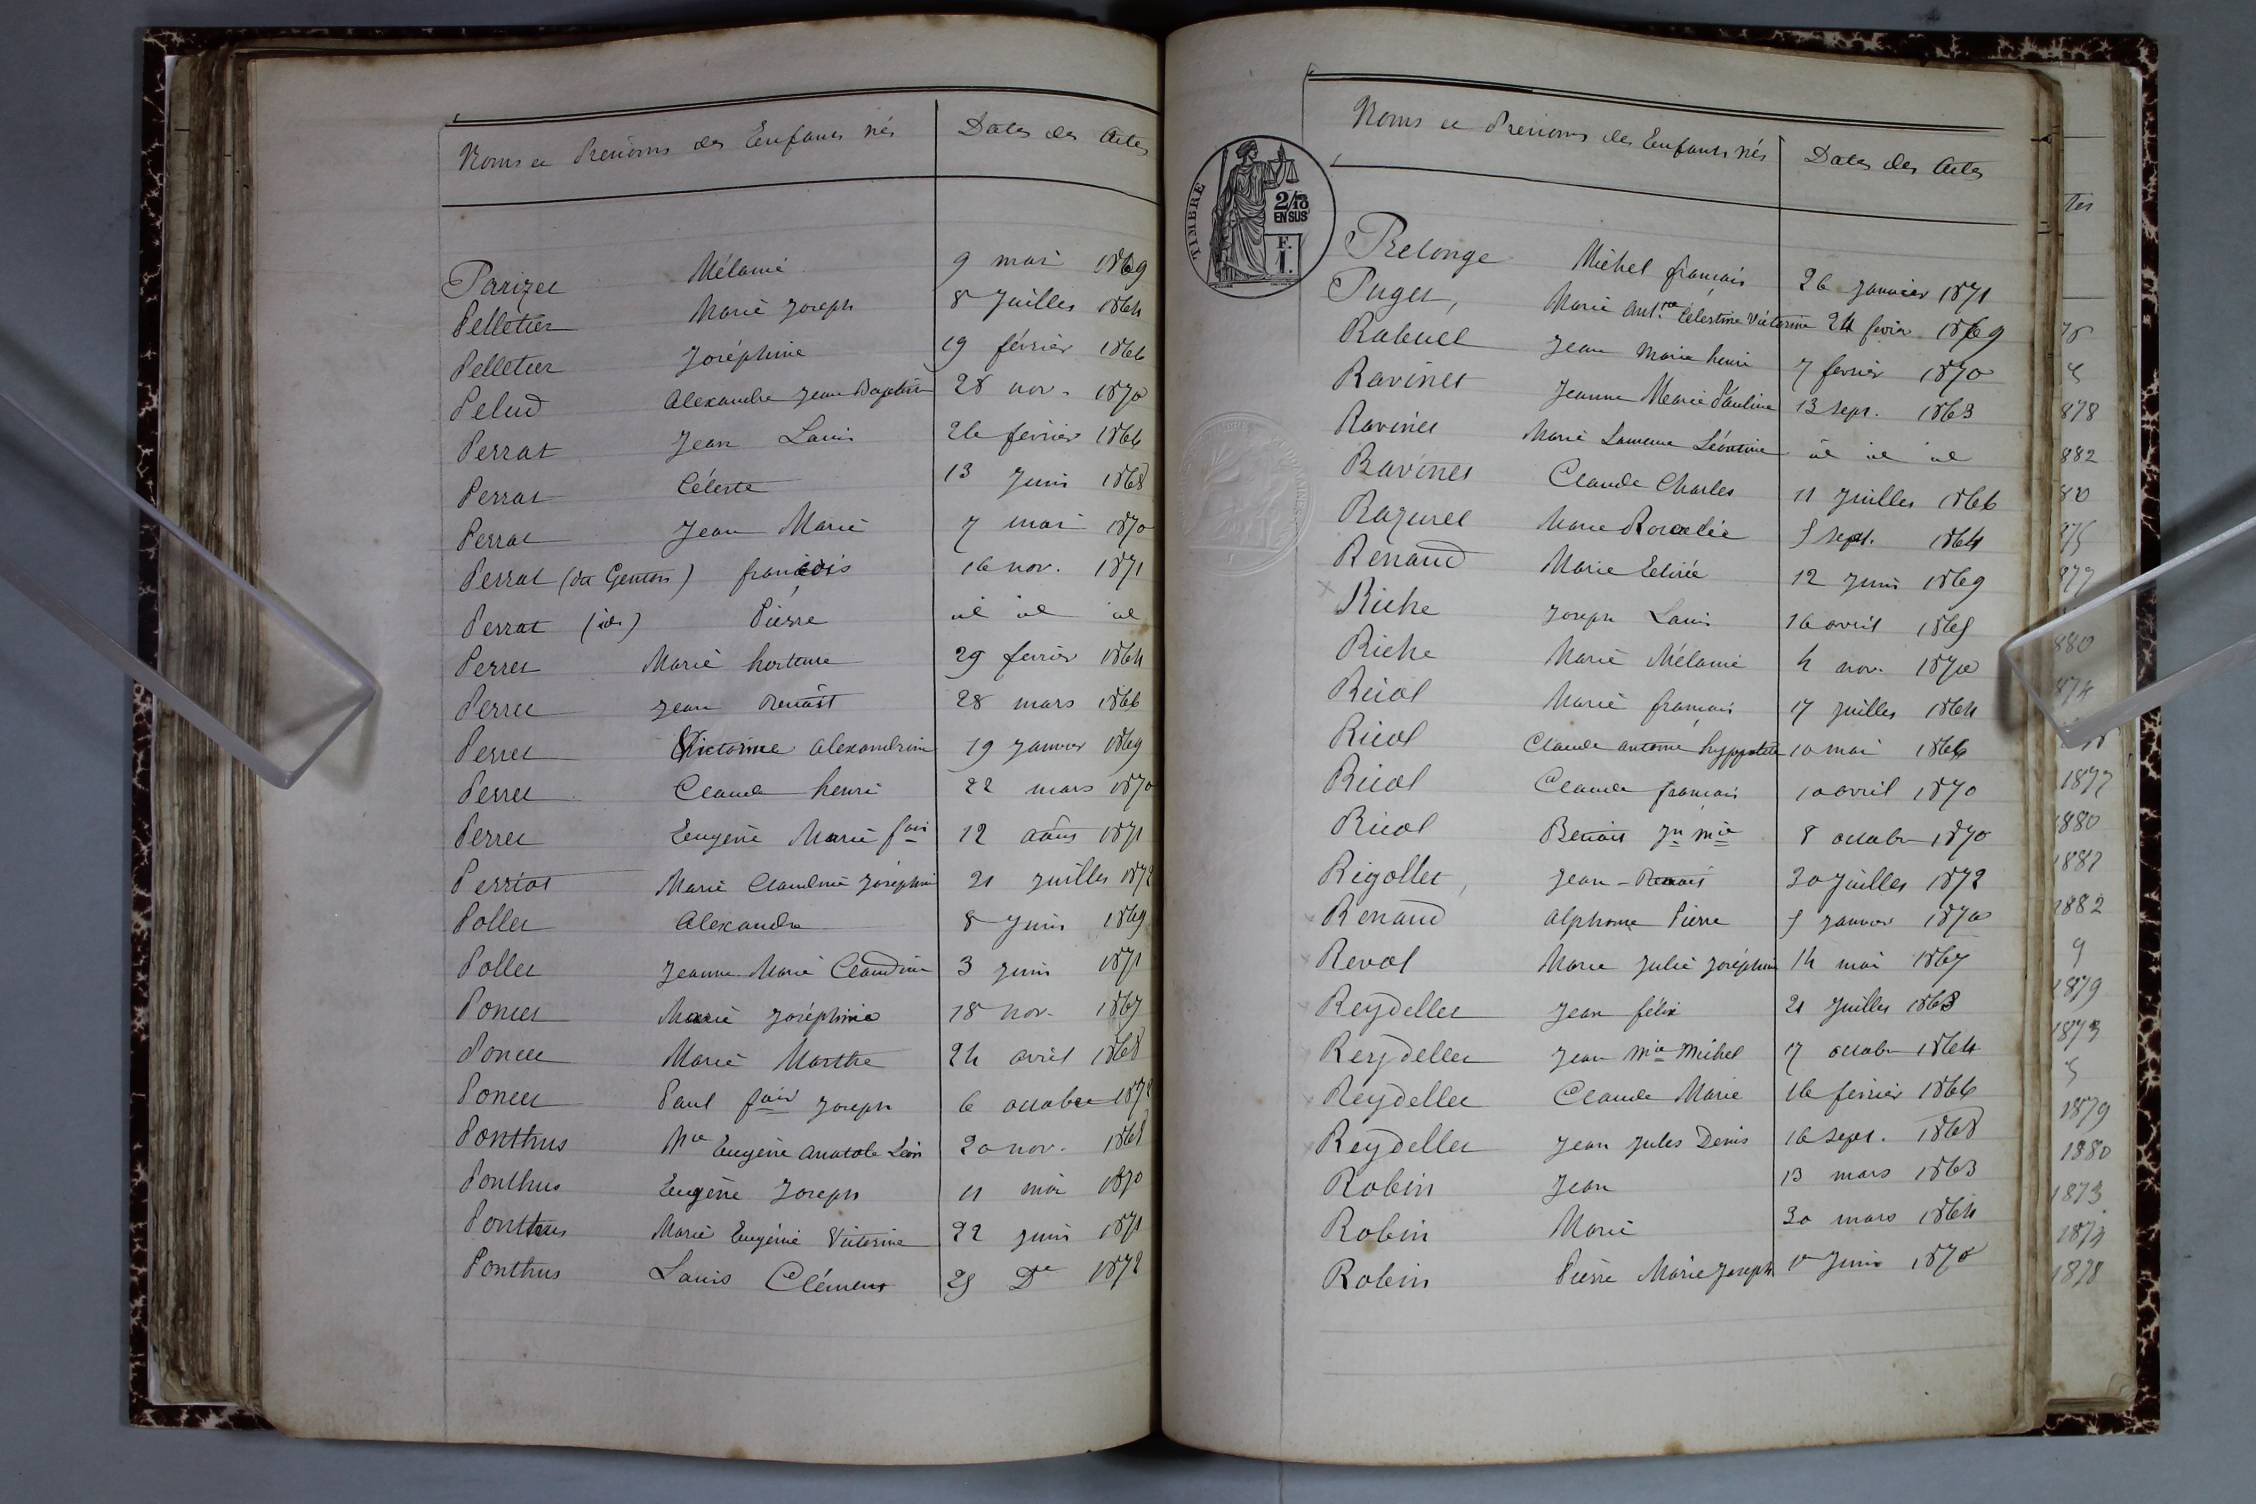 Noms et Prénoms des Enfants nés Dates des Actes
Parizet Mélanie 9 mai 1869
Pelletier Marie Joseph 8 Juillet 1864
Pelletier Joséphine 19 février 1866
Pelud Alexandre Jean Baptiste 28 nov. 1870
Perrat Jean Louis 26 février 1866
Perrat Céleste 13 Juin 1868
Perrat Jean Marie 7 mai 1870
Perrat (dit Genton) françois 16 nov. 1871
Perrat (id) Pierre id id id
Perret Marie hortense 29 février 1864
Perret Jean Benoît 28 mars 1866
Perret Victorine alexandrine 19 Janvier 1869
Perret Claude henri 22 mars 1870
Perret Eugénie Marie fois 12 août 1871
Perriot Marie Claudine Joséphine 21 Juillet 1872
Pollet Alexandre 8 Juin 1869
Pollet Jeanne Marie Claudine 3 Juin 1871
Poncet Marie Joséphine 18 nov. 1867
Poncet Marie Marthe 24 avril 1868
Poncet Paul fois Joseph 6 octobre 1872
Ponthus Mie Eugène Anatole Léon 20 nov. 1868
Ponthus Eugène Joseph 11 mai 1870
Ponthus Marie Eugénie Victorine 22 Juin 1871
Ponthus Louis Clément 25 De 1872
TIMBRE
2/10
EN SUS
F.
1.
Noms et Prénoms des Enfants nés Dates des Actes
Prelonge Michel françois 26 Janvier 1871
Puget, Marie Antnte Célestine Victorine 24 fevier 1869
Rabuel Jean Marie henri 7 fevrier 1870
Ravinet Jeanne Marie Pauline 13 sept. 1863
Ravinet Marie Laurence Léontine id id id
Ravinet Claude Charles 11 Juillet 1866
Razurel Marie Rosalie 5 sept. 1864
Renaud Marie Désirée 12 Juin 1869
Riche Joseph Louis 16 avril 1865
Riche Marie Mélanie 4 nov. 1870
Ricol Marie françois 17 Juillet 1864
Ricol Claude antoine hyppolite 10 mai 1866
Ricol Claude françois 10 avril 1870
Ricol Benoit Jn Mie 8 octobre 1870
Rigollet, Jean-Benoit 30 Juillet 1872
Renaud alphonse Pierre 5 Janvier 1870
Revol Marie Julie Joséphine 14 mai 1867
Reydellet Jean félix 21 Juillet 1863
Reydellet Jean Mie Michel 17 octobre 1864
Reydellet Claude Marie 16 février 1866
Reydellet Jean Jules Denis 16 sept. 1868
Robin Jean 13 mars 1863
Robin Marie 30 mars 1864
Robin Pierre Marie Joseph 1er Juin 1870
tes
878
882
80
75
877
880
874
1877
1880
1882
1882
9
1879
1873
1879
1880
1873
1874
1878